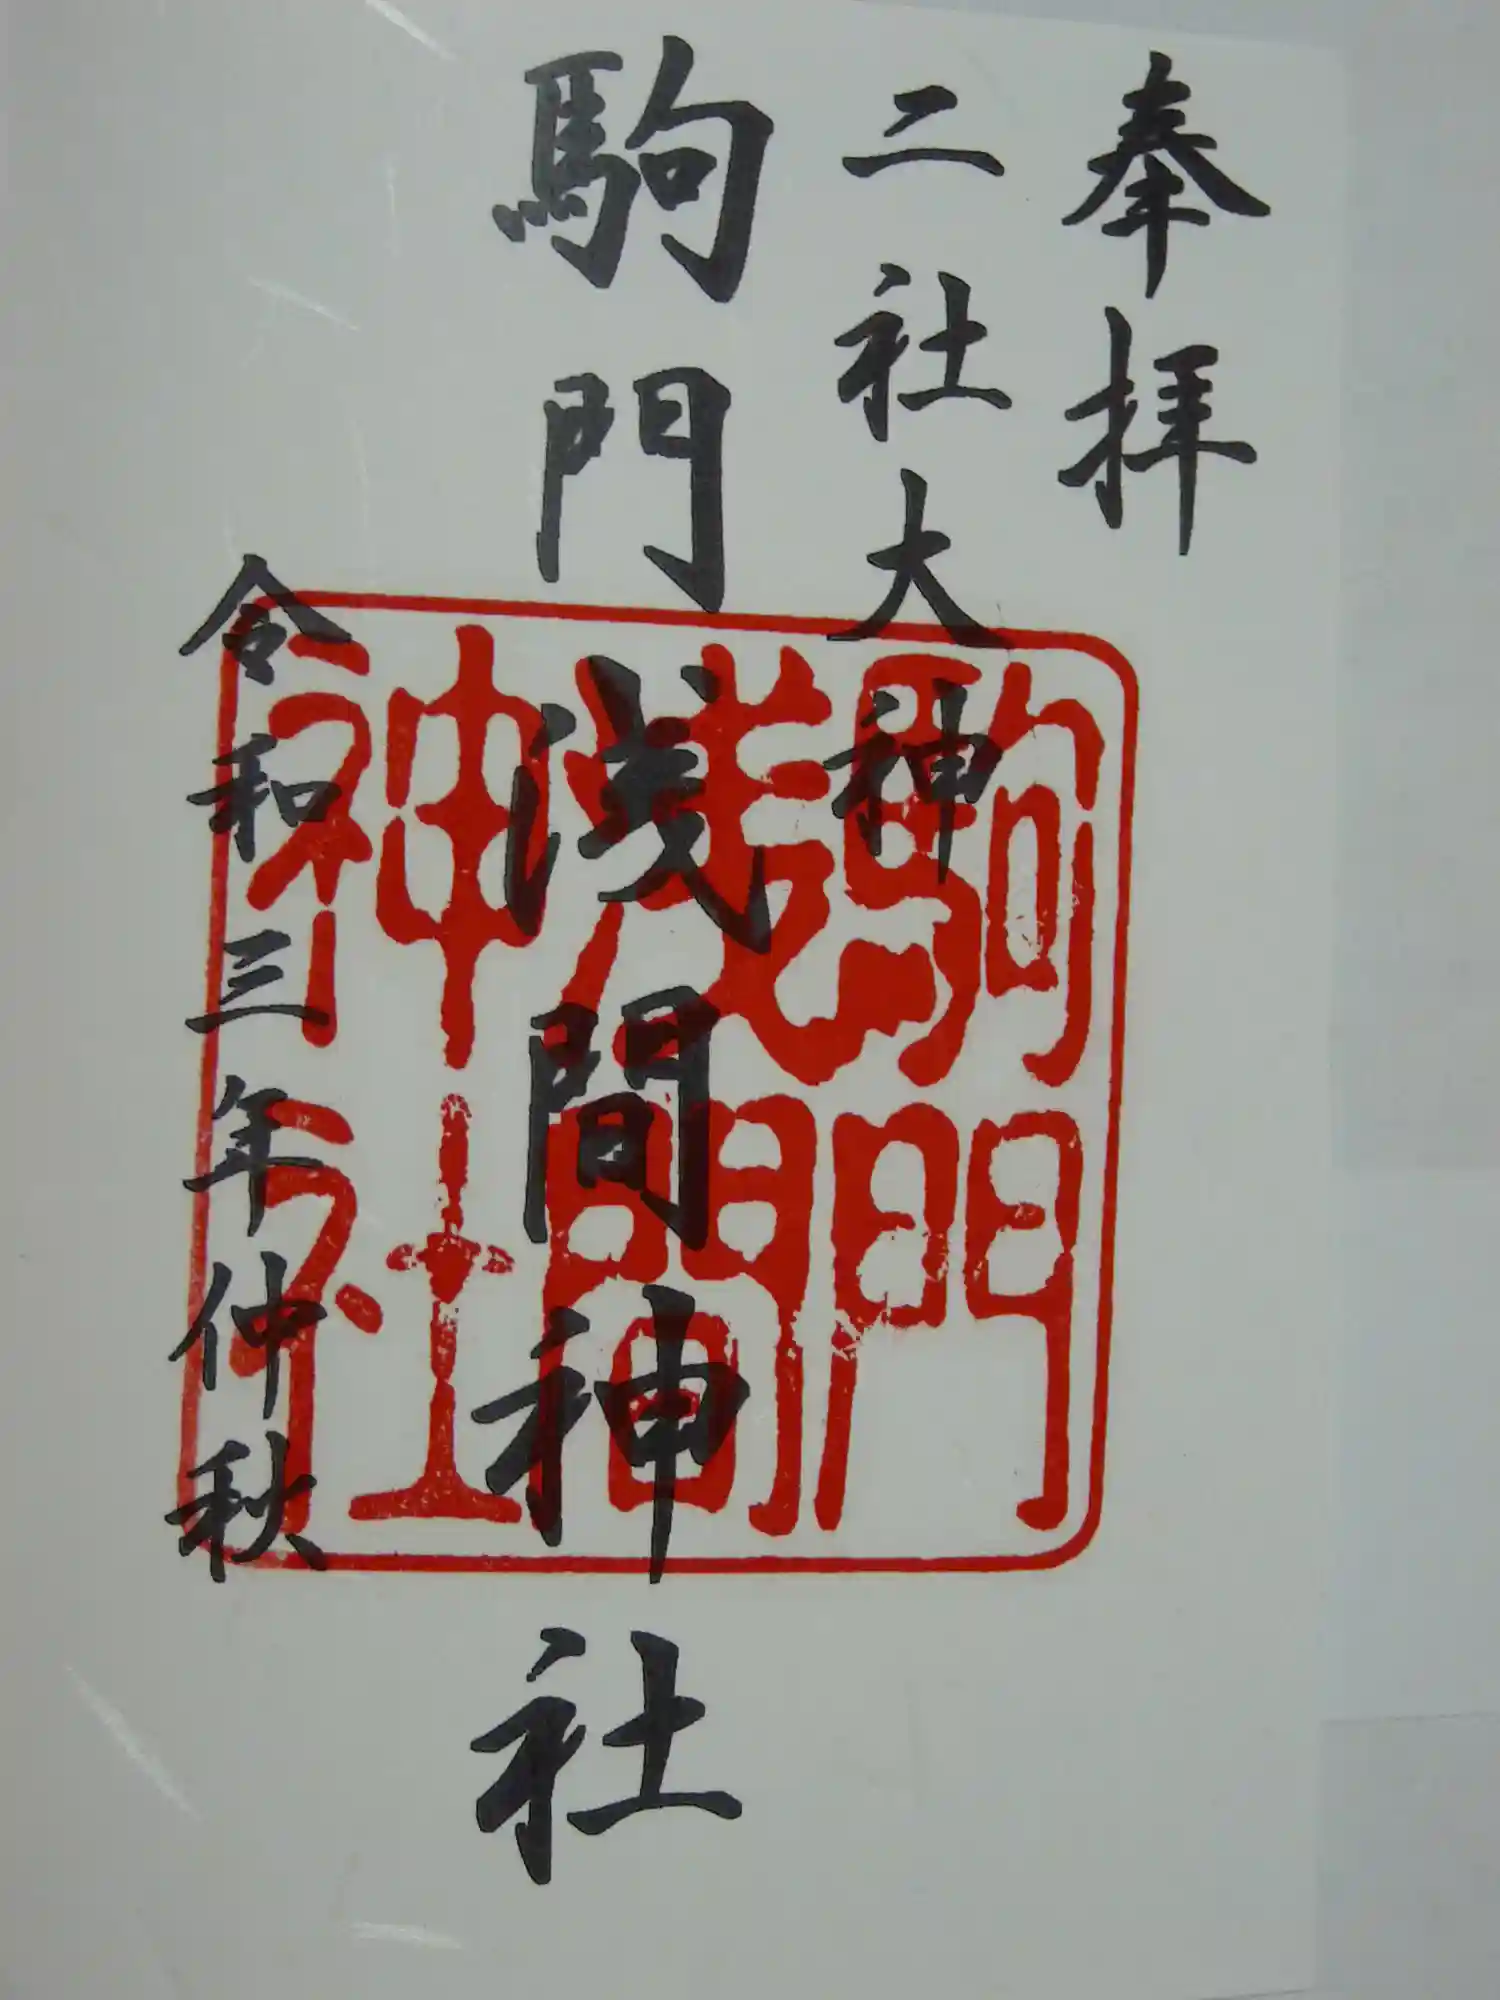 奉拝
二社大神
駒門浅間神社
令和三年仲秋
駒門
浅間
神社